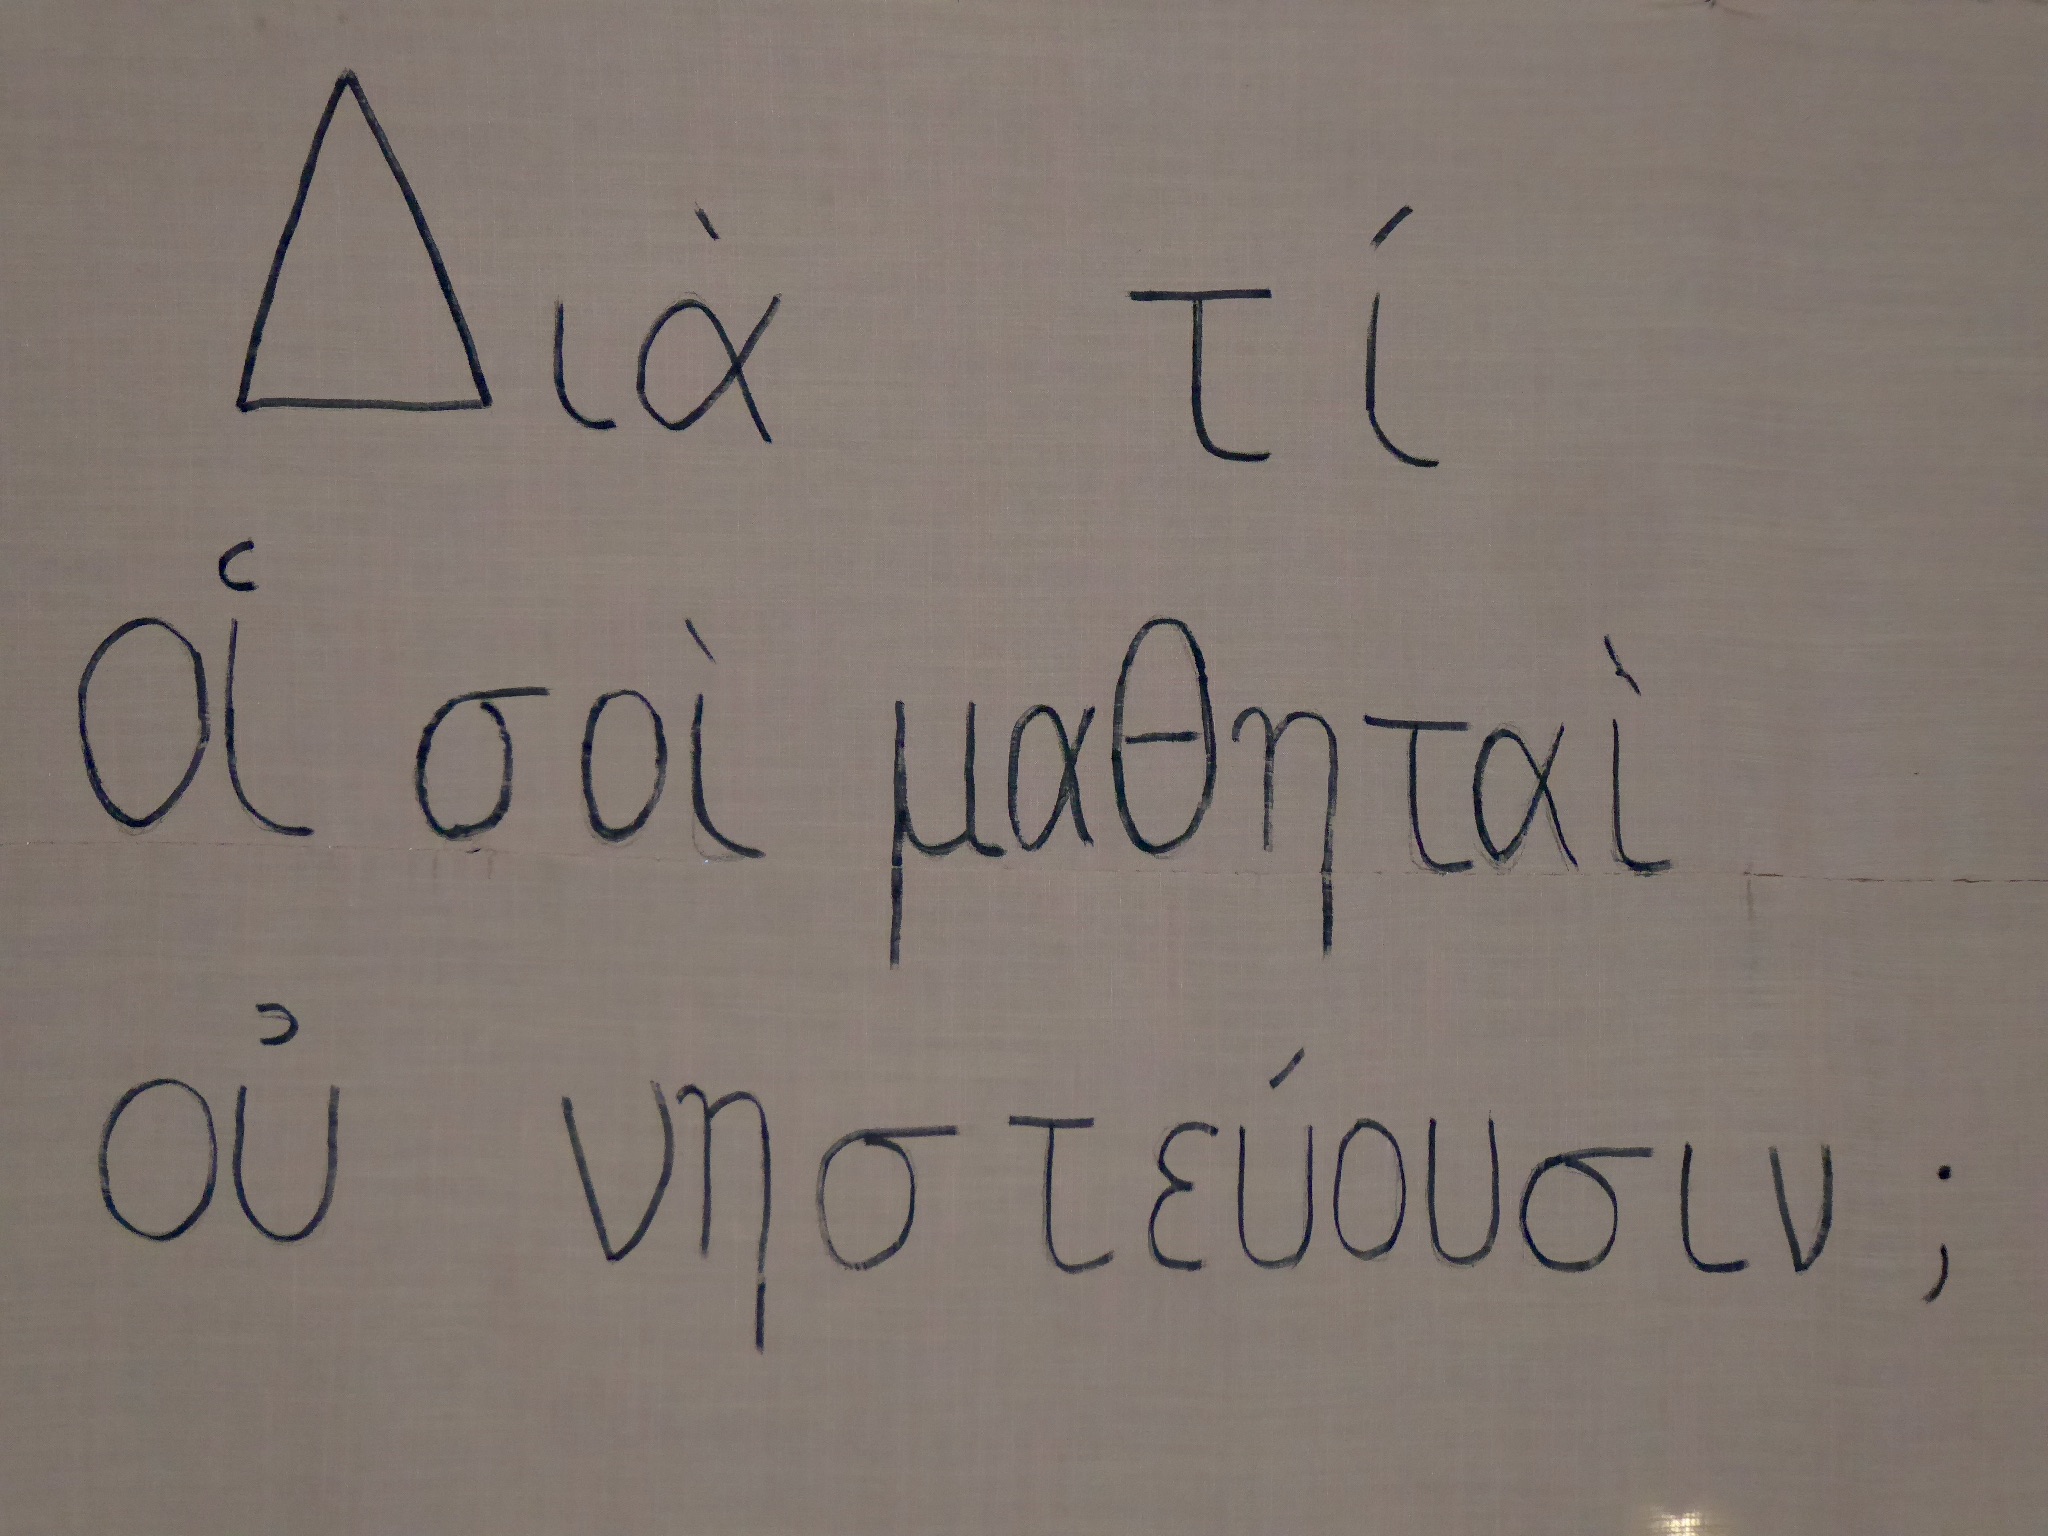 Διὰ τί
οἱ σοὶ μαθηταὶ
οὐ νηστεύουσιν;